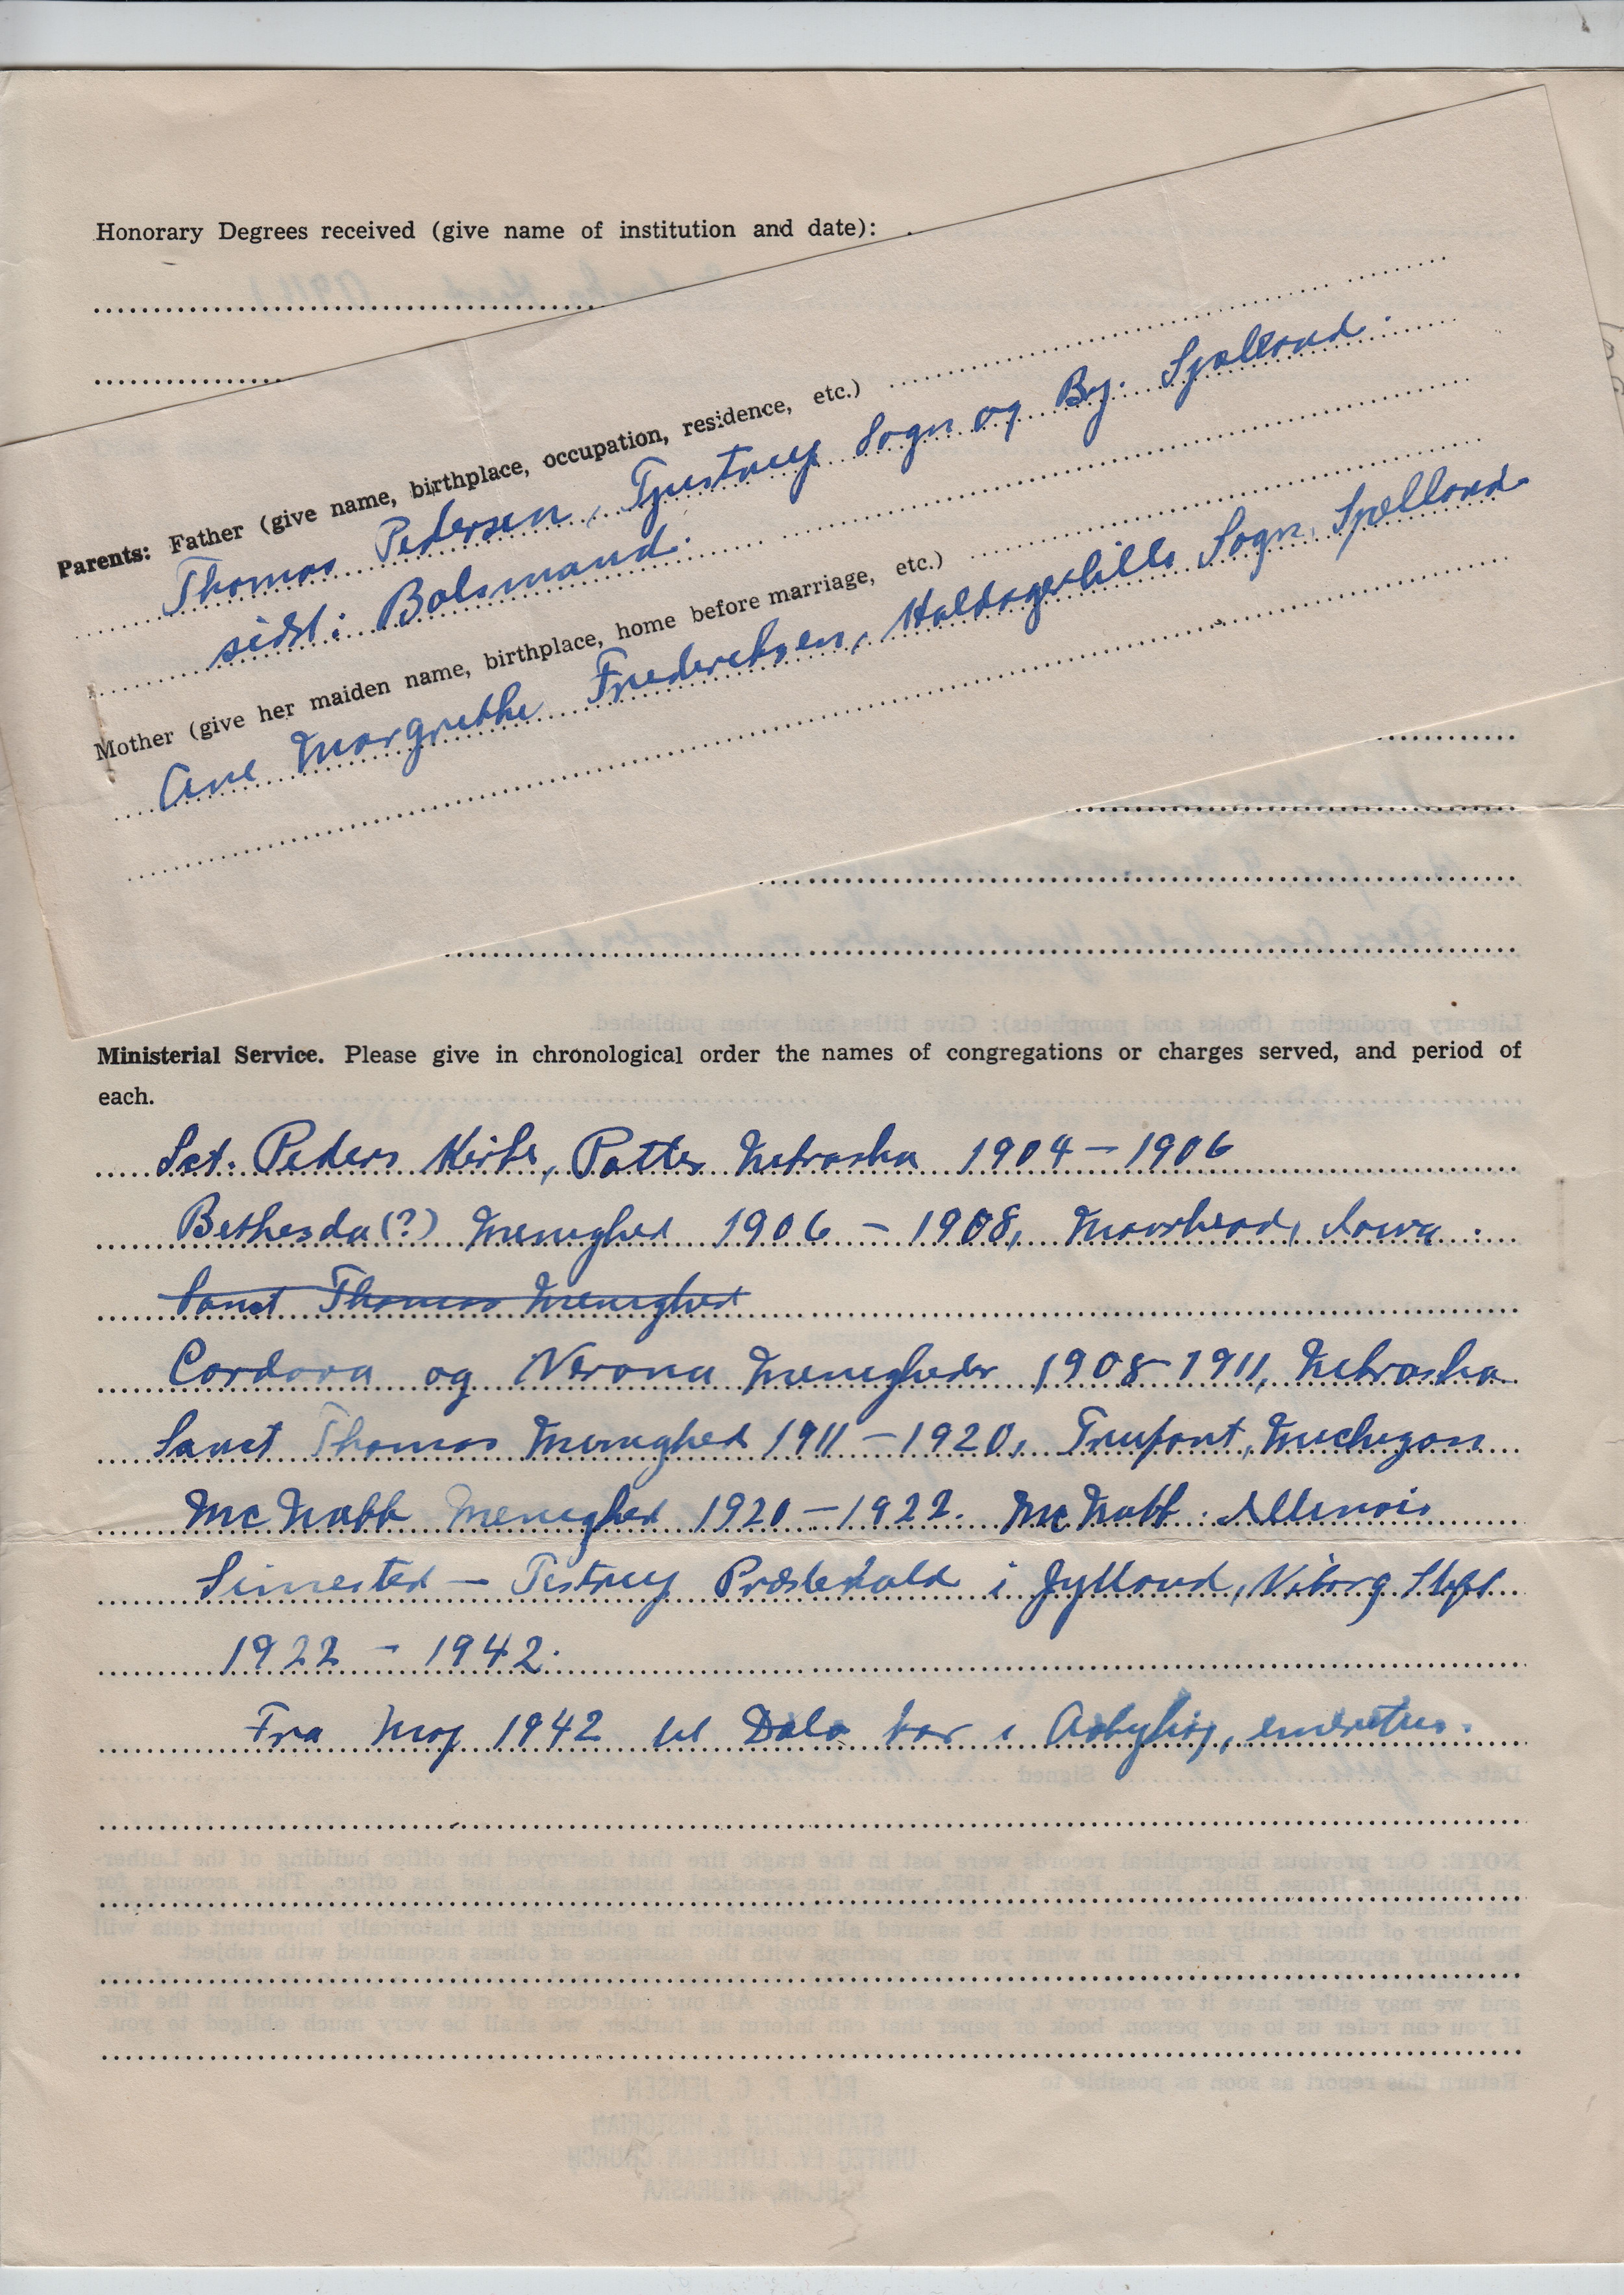 Honorary Degrees received (give name of institution and date):
Parents: Father (give name, birthplace, occupation, residence, etc.)
Thomas Pedersen, Tjustrup Sogn og By. Sjælland.
sidst: Bolsmand.
Mother (give her maiden name, birthplace, home before marriage, etc.)
Ane Margrethe Frederiksen, Haldagerlille Sogn, Sjælland
Ministerial Service. Please give in chronological order the names of congregations or charges served, and period of
each.
Sct. Peders Kirke, Potter Nebraska 1904 – 1906
Bethesda (?) Menighed 1906 – 1908, Moorhead, Iowa.
Sanct Thomas Menighed
Cordova og Verona Menigheder 1908-1911, Nebraska
Sanct Thomas Menighed 1911 – 1920, Trufant, Michigan
McNabb Menighed 1920 – 1922. McNabb. Illinois
Simested – Testrup Præstekald i Jylland, Viborg Stift
1922 – 1942.
Fra Maj 1942 til Dato bor i Aabyhøj, emeritus.